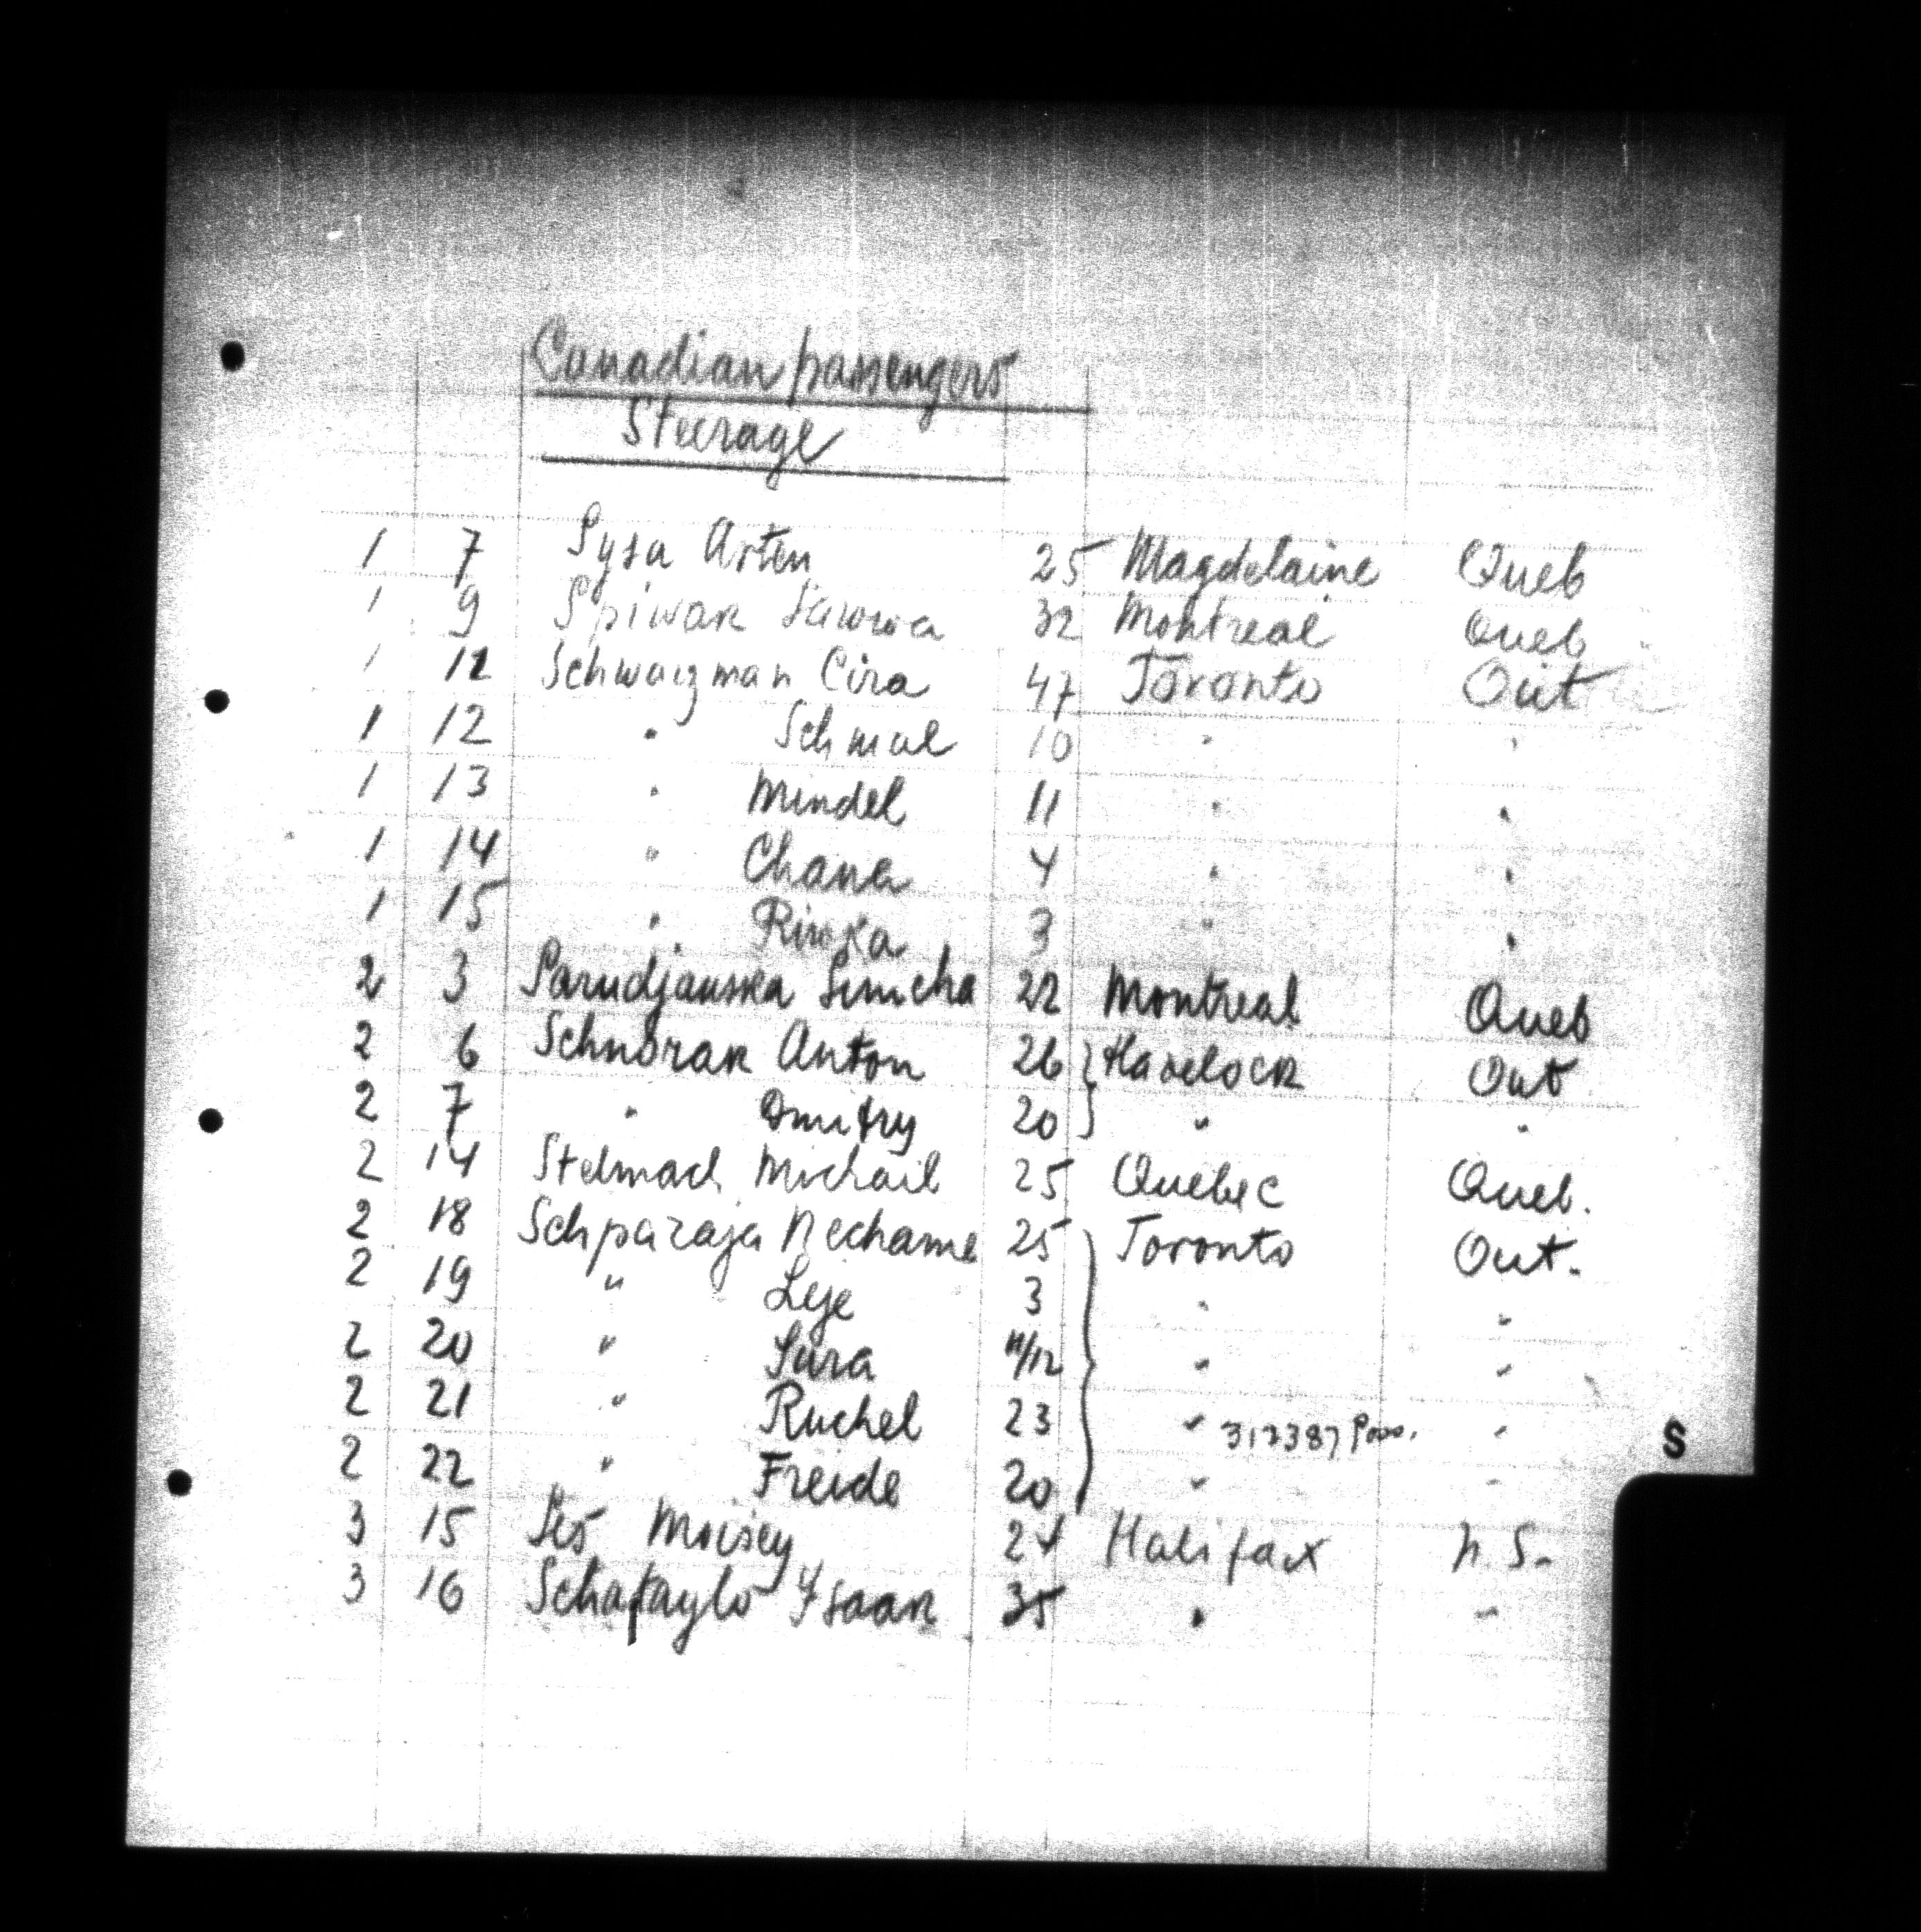 Canadian passengers
Steerage
1 7 Sysa Arten 25 Magdelaine Queb
1 9 Spiwak Sawwa 32 Montreal Queb
1 12 Schwarzman Cira 47 Toronto Ont
1 12 " Schmul 10 " "
1 13 " Mindel 11 " "
1 14 " Chana 4 " "
1 15 " Riwka 3 " "
2 3 Simcha 22 Montreal Queb
2 6 Schnorak Anton 26 Havelock Ont
2 7 " Dmitry 20 " "
2 14 Stelmach Michail 25 Quebec Queb.
2 18 Schparaja Nechame 25 Toronto Ont.
2 19 " Leje 3 " "
2 20 " Sura 11/12 " "
2 21 " Ruchel 23 " 312387 Pass. "
2 22 " Freide 20 " "
3 15 Moisey Halifax N. S.
3 16 Schafaylo Ysaak 35 " "
S